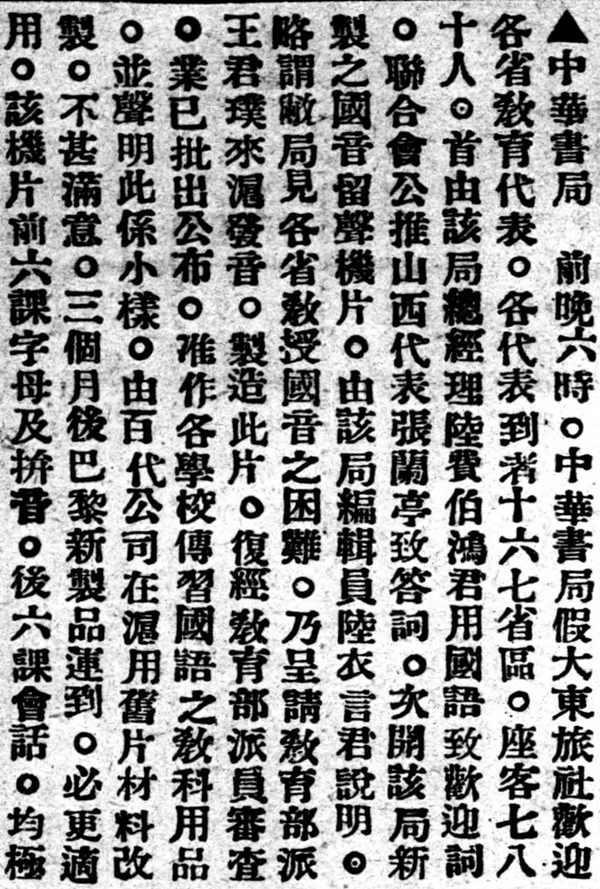 ▲中華書局　前晚六時。中華書局假大東旅社歡迎
各省教育代表。各代表到者十六七省區。座客七八
十人。首由該局總經理陸費伯鴻君用國語致歡迎詞
。聯合會公推山西代表張蘭亭致答詞。次開該局新
製之國音留聲機片。由該局編輯員陸衣言君說明。
略謂敝局見各省教授國音之困難。乃呈請教育部派
王君璞來滬發音。製造此片。復經教育部派員審查
。業已批出公布。准作各學校傳習國語之教科用品
。並聲明此係小樣。由百代公司在滬用舊片材料改
製。不甚滿意。三個月後巴黎新製品運到。必更適
用。該機片前六課字母及拚音。後六課會話。均極